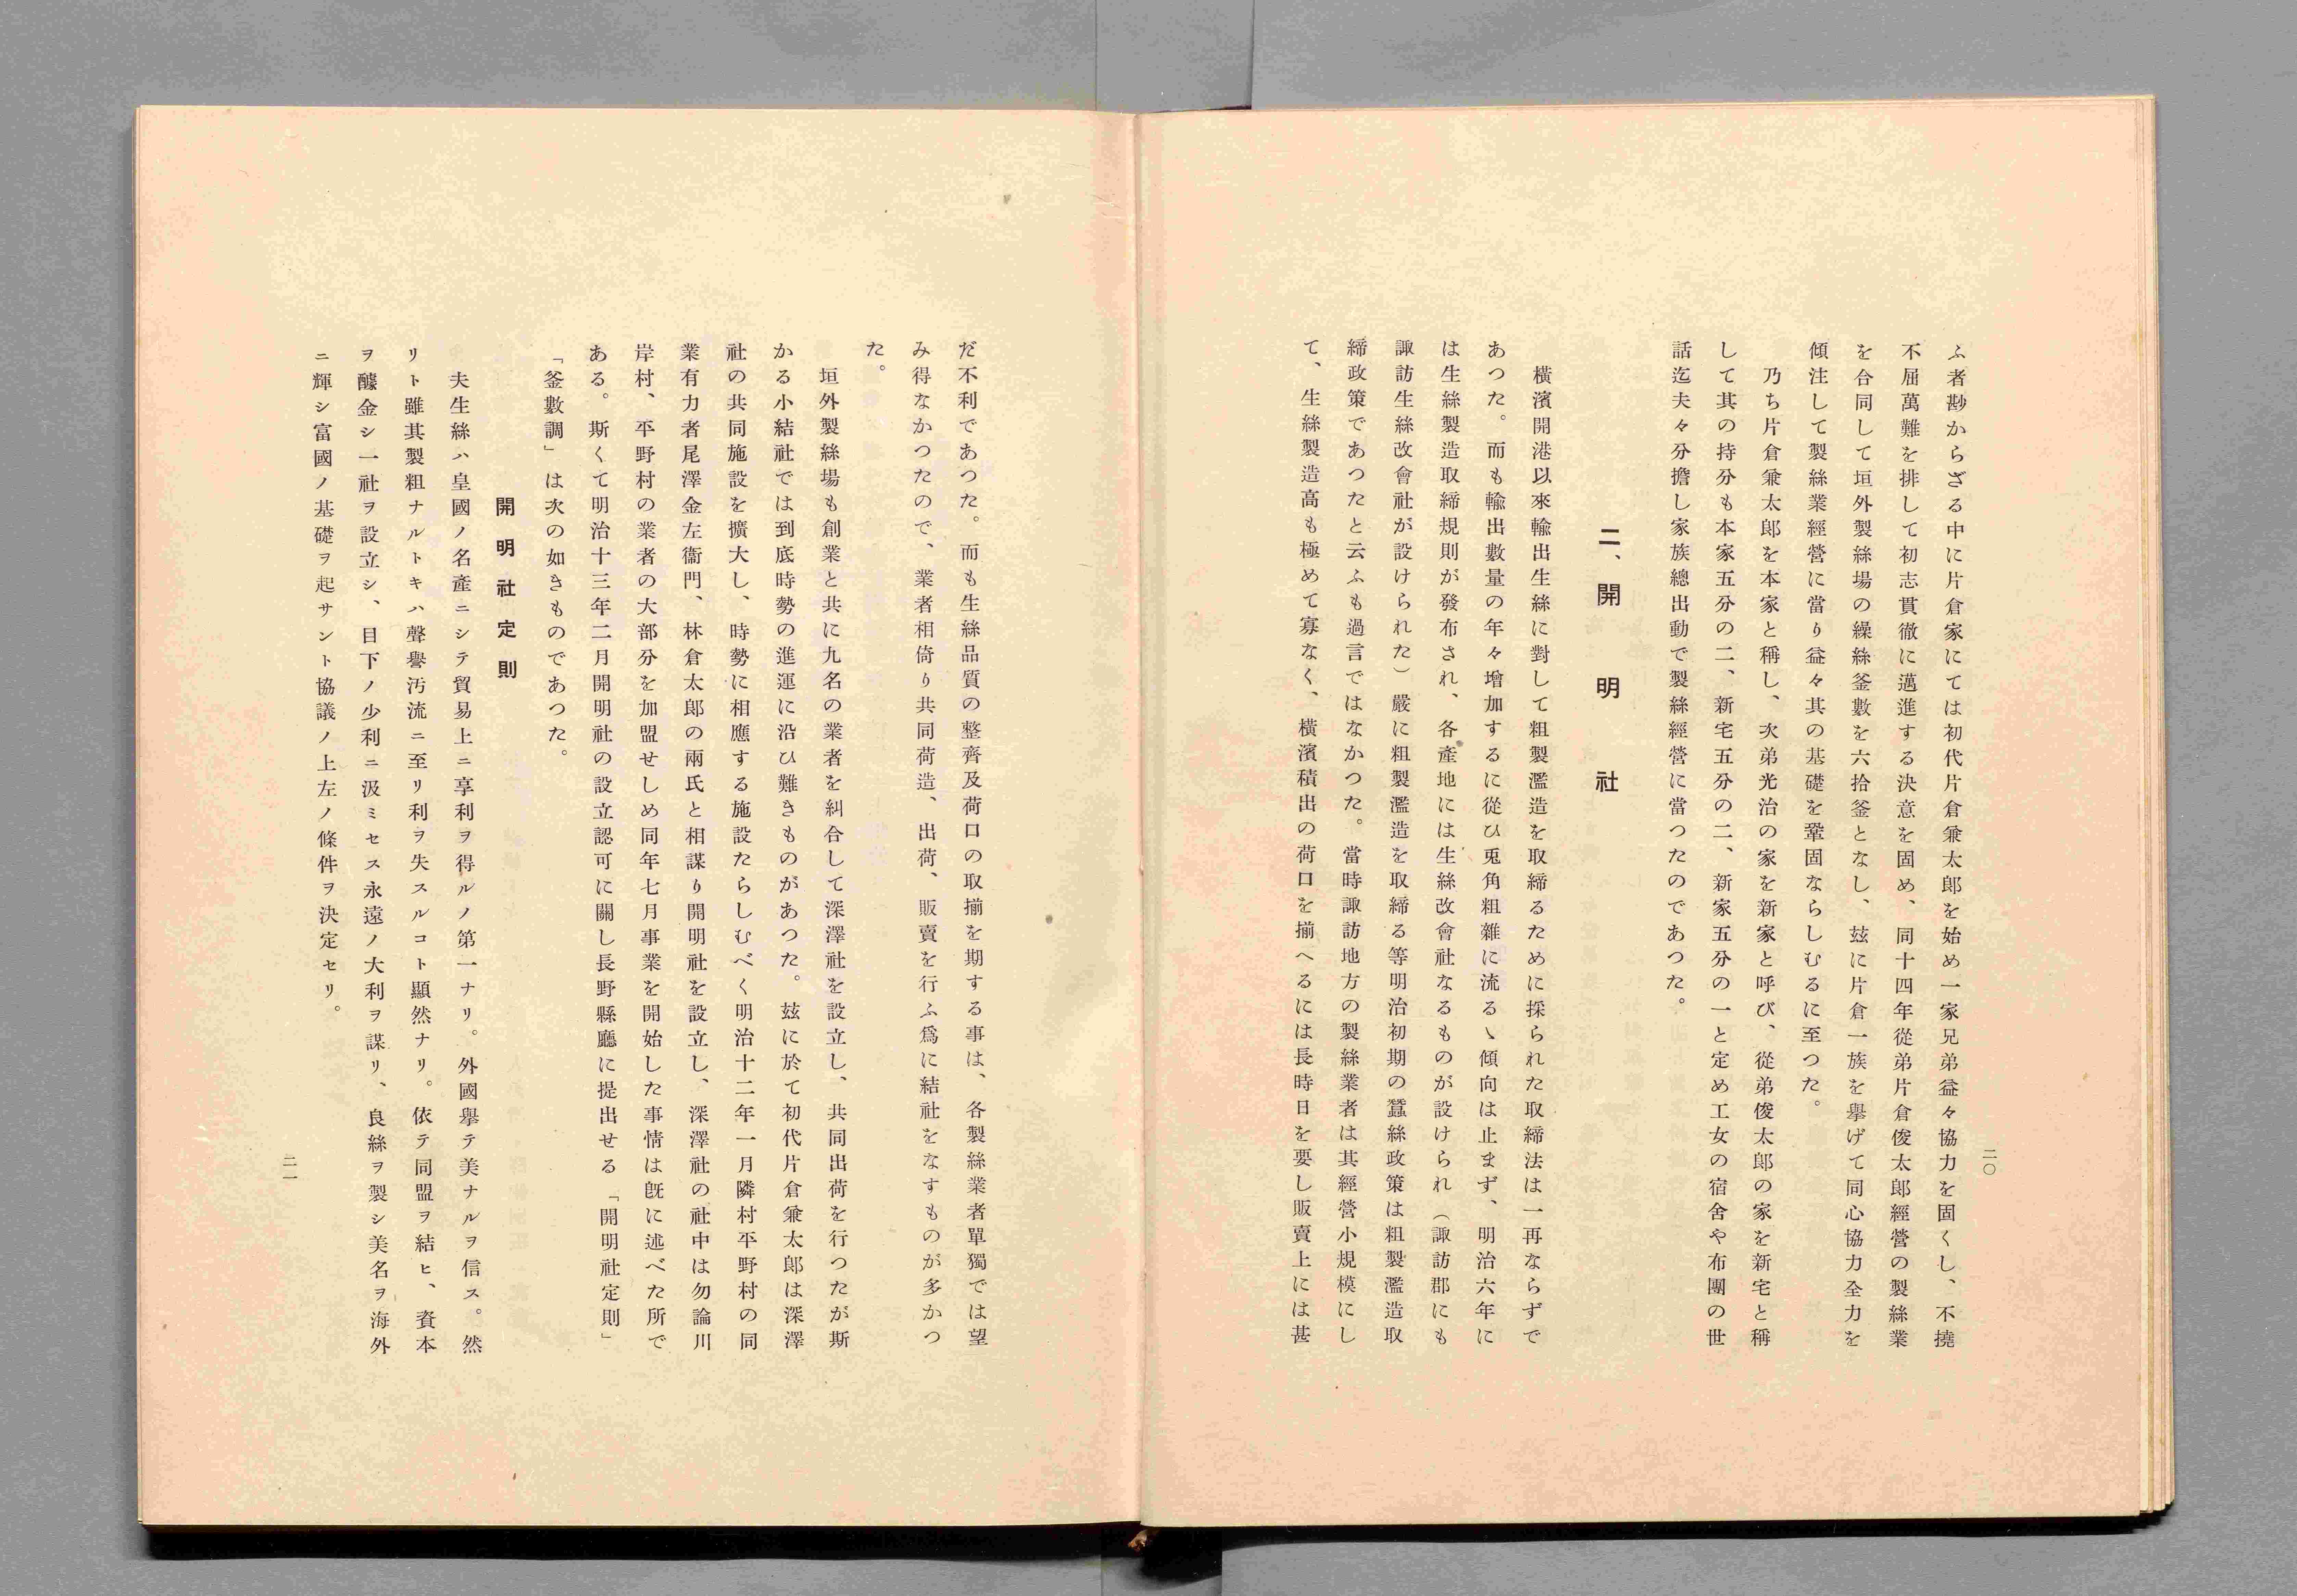 ふ者尠からざる中に片倉家にては初代片倉兼太郎を始め一家兄弟益々協力を固くし、不撓
不屈萬難を排して初志貫徹に邁進する決意を固め、同十四年從弟片倉俊太郎經營の製絲業
を合同して垣外製絲場の繰絲釜數を六拾釜となし、玆に片倉一族を擧げて同心協力全力を
傾注して製絲業經營に當り益々其の基礎を鞏固ならしむるに至つた。
乃ち片倉兼太郎を本家と稱し、次弟光治の家を新家と呼び、從弟俊太郎の家を新宅と稱
して其の持分も本家五分の二、新宅五分の二、新家五分の一と定め工女の宿舍や布團の世
話迄夫々分擔し家族總出動で製絲經營に當つたのであつた。
二、開明社
橫濱開港以來輸出生絲に對して粗製濫造を取締るために採られた取締法は一再ならずで
あつた。而も輸出數量の年々增加するに從ひ兎角粗雜に流るゝ傾向は止まず、明治六年に
は生絲製造取締規則が發布され、各產地には生絲改會社なるものが設けられ（諏訪郡にも
諏訪生絲改會社が設けられた）嚴に粗製濫造を取締る等明治初期の蠶絲政策は粗製濫造取
締政策であつたと云ふも過言ではなかつた。當時諏訪地方の製絲業者は其經營小規模にし
て、生絲製造高も極めて寡なく、橫濱積出の荷口を揃へるには長時日を要し販賣上には甚
二〇
だ不利であつた。而も生絲品質の整齊及荷口の取揃を期する事は、各製絲業者單獨では望
み得なかつたので、業者相倚り共同荷造、出荷、販賣を行ふ爲に結社をなすものが多かつ
た。
垣外製絲場も創業と共に九名の業者を糾合して深澤社を設立し、共同出荷を行つたが斯
かる小結社では到底時勢の進運に沿ひ難きものがあつた。玆に於て初代片倉兼太郎は深澤
社の共同施設を擴大し、時勢に相應する施設たらしむべく明治十二年一月隣村平野村の同
業有力者尾澤金左衞門、林倉太郎の兩氏と相謀り開明社を設立し、深澤社の社中は勿論川
岸村、平野村の業者の大部分を加盟せしめ同年七月事業を開始した事情は旣に述べた所で
ある。斯くて明治十三年二月開明社の設立認可に關し長野縣廳に提出せる「開明社定則」
「釜數調」は次の如きものであつた。
開明社定則
夫生絲ハ皇國ノ名產ニシテ貿易上ニ享利ヲ得ルノ第一ナリ。外國擧テ美ナルヲ信ス。然
リト雖其製粗ナルトキハ聲譽汚流ニ至リ利ヲ失スルコト顯然ナリ。依テ同盟ヲ結ヒ、資本
ヲ醵金シ一社ヲ設立シ、目下ノ少利ニ汲ミセス永遠ノ大利ヲ謀リ、良絲ヲ製シ美名ヲ海外
ニ輝シ富國ノ基礎ヲ起サント協議ノ上左ノ條件ヲ決定セリ。
二一